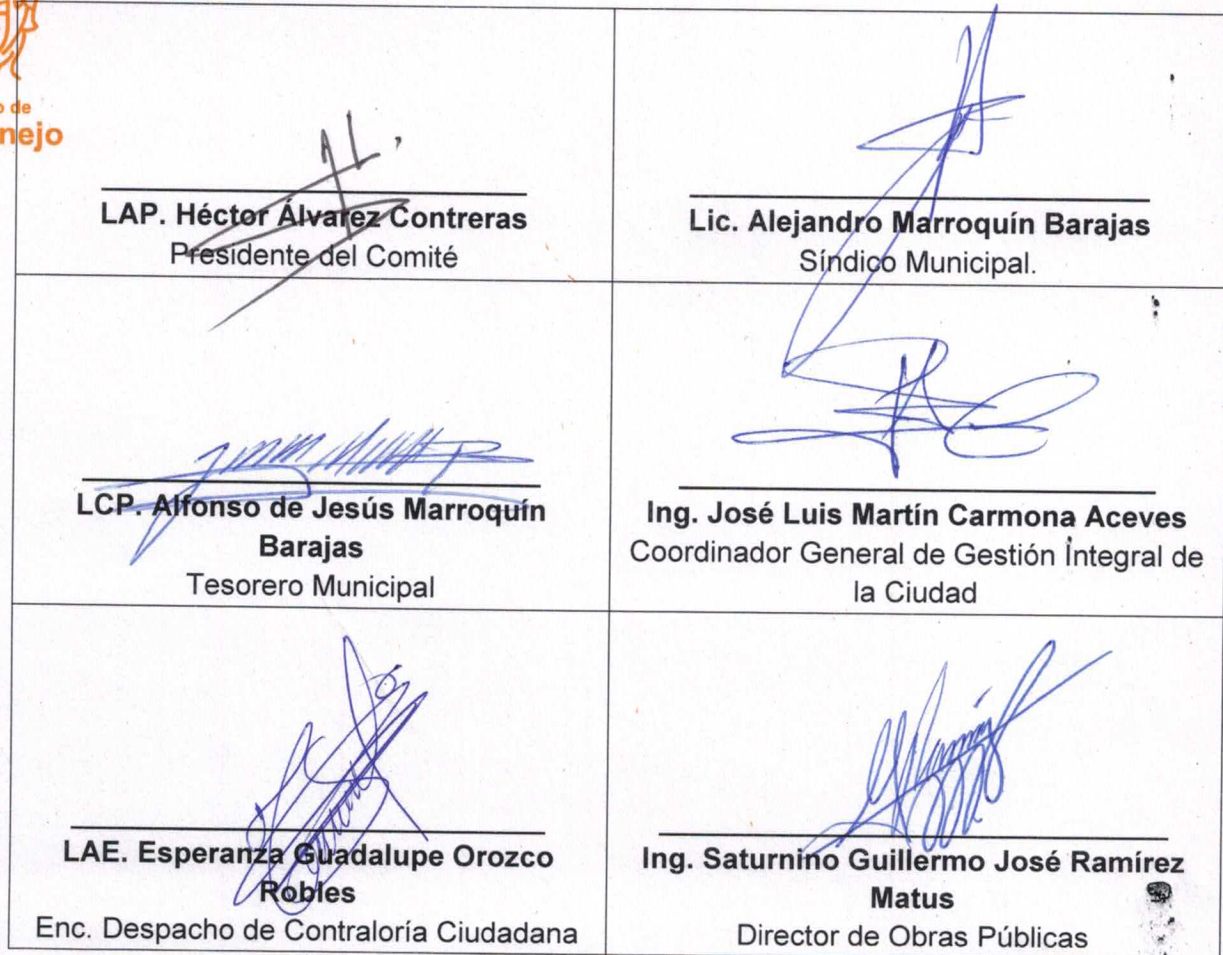 o de
nejo
LAP. Héctor Álvarez Contreras
Presidente del Comité
Lic. Alejandro Marroquín Barajas
Síndico Municipal.
LCP. Alfonso de Jesús Marroquín
Barajas
Tesorero Municipal
Ing. José Luis Martín Carmona Aceves
Coordinador General de Gestión Integral de
la Ciudad
LAE. Esperanza Guadalupe Orozco
Robles
Enc. Despacho de Contraloría Ciudadana
Ing. Saturnino Guillermo José Ramírez
Matus
Director de Obras Públicas